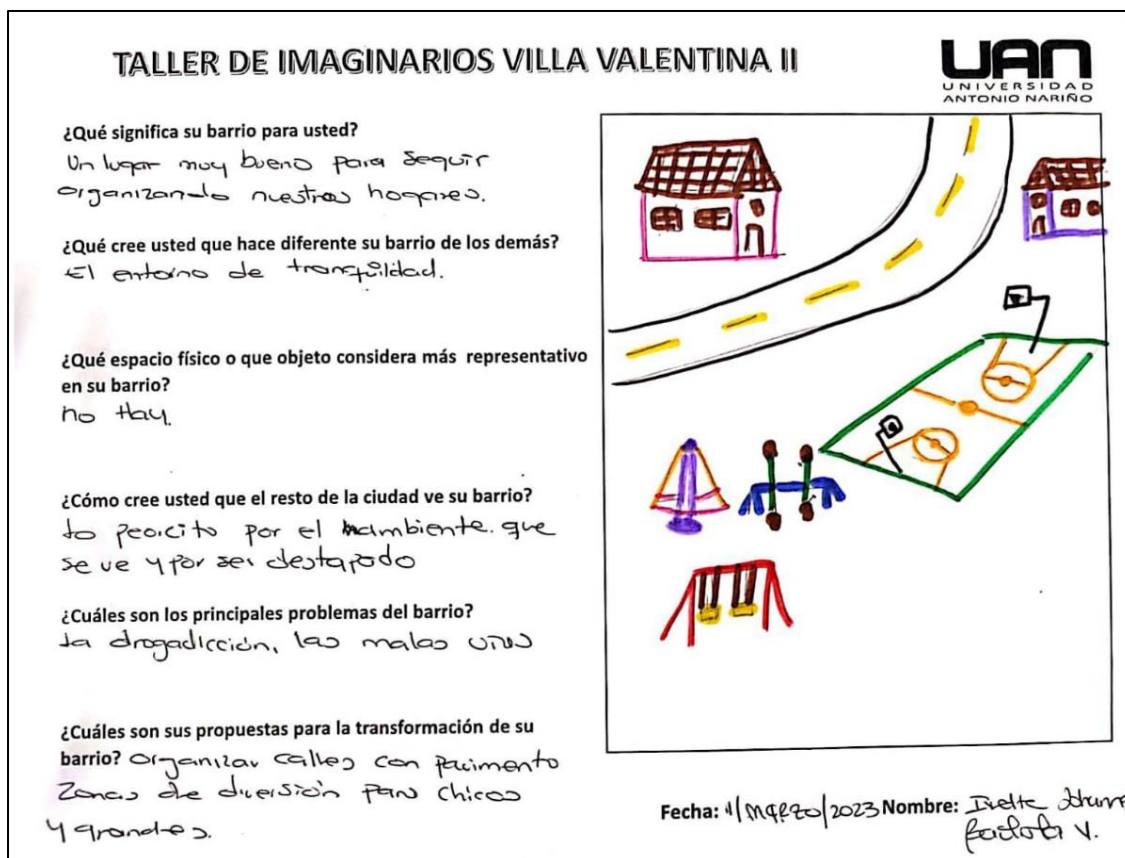 TALLER DE IMAGINARIOS VILLA VALENTINA II
UAN
UNIVERSIDAD
ANTONIO NARIÑO
¿Qué significa su barrio para usted?
Un lugar muy bueno para seguir
organizando nuestros hogares.
¿Qué cree usted que hace diferente su barrio de los demás?
El entorno de tranquilidad.
¿Qué espacio físico o que objeto considera más representativo
en su barrio?
no Hay.
¿Cómo cree usted que el resto de la ciudad ve su barrio?
lo peorcito por el ambiente. que
se ve y por ser destapado
¿Cuáles son los principales problemas del barrio?
La drogadicción, las malas vias
¿Cuáles son sus propuestas para la transformación de su
barrio? organizar calles con pavimento
Zonas de diversión para chicos
y grandes.
Fecha: /MARZO/2023 Nombre: Ivette
V.